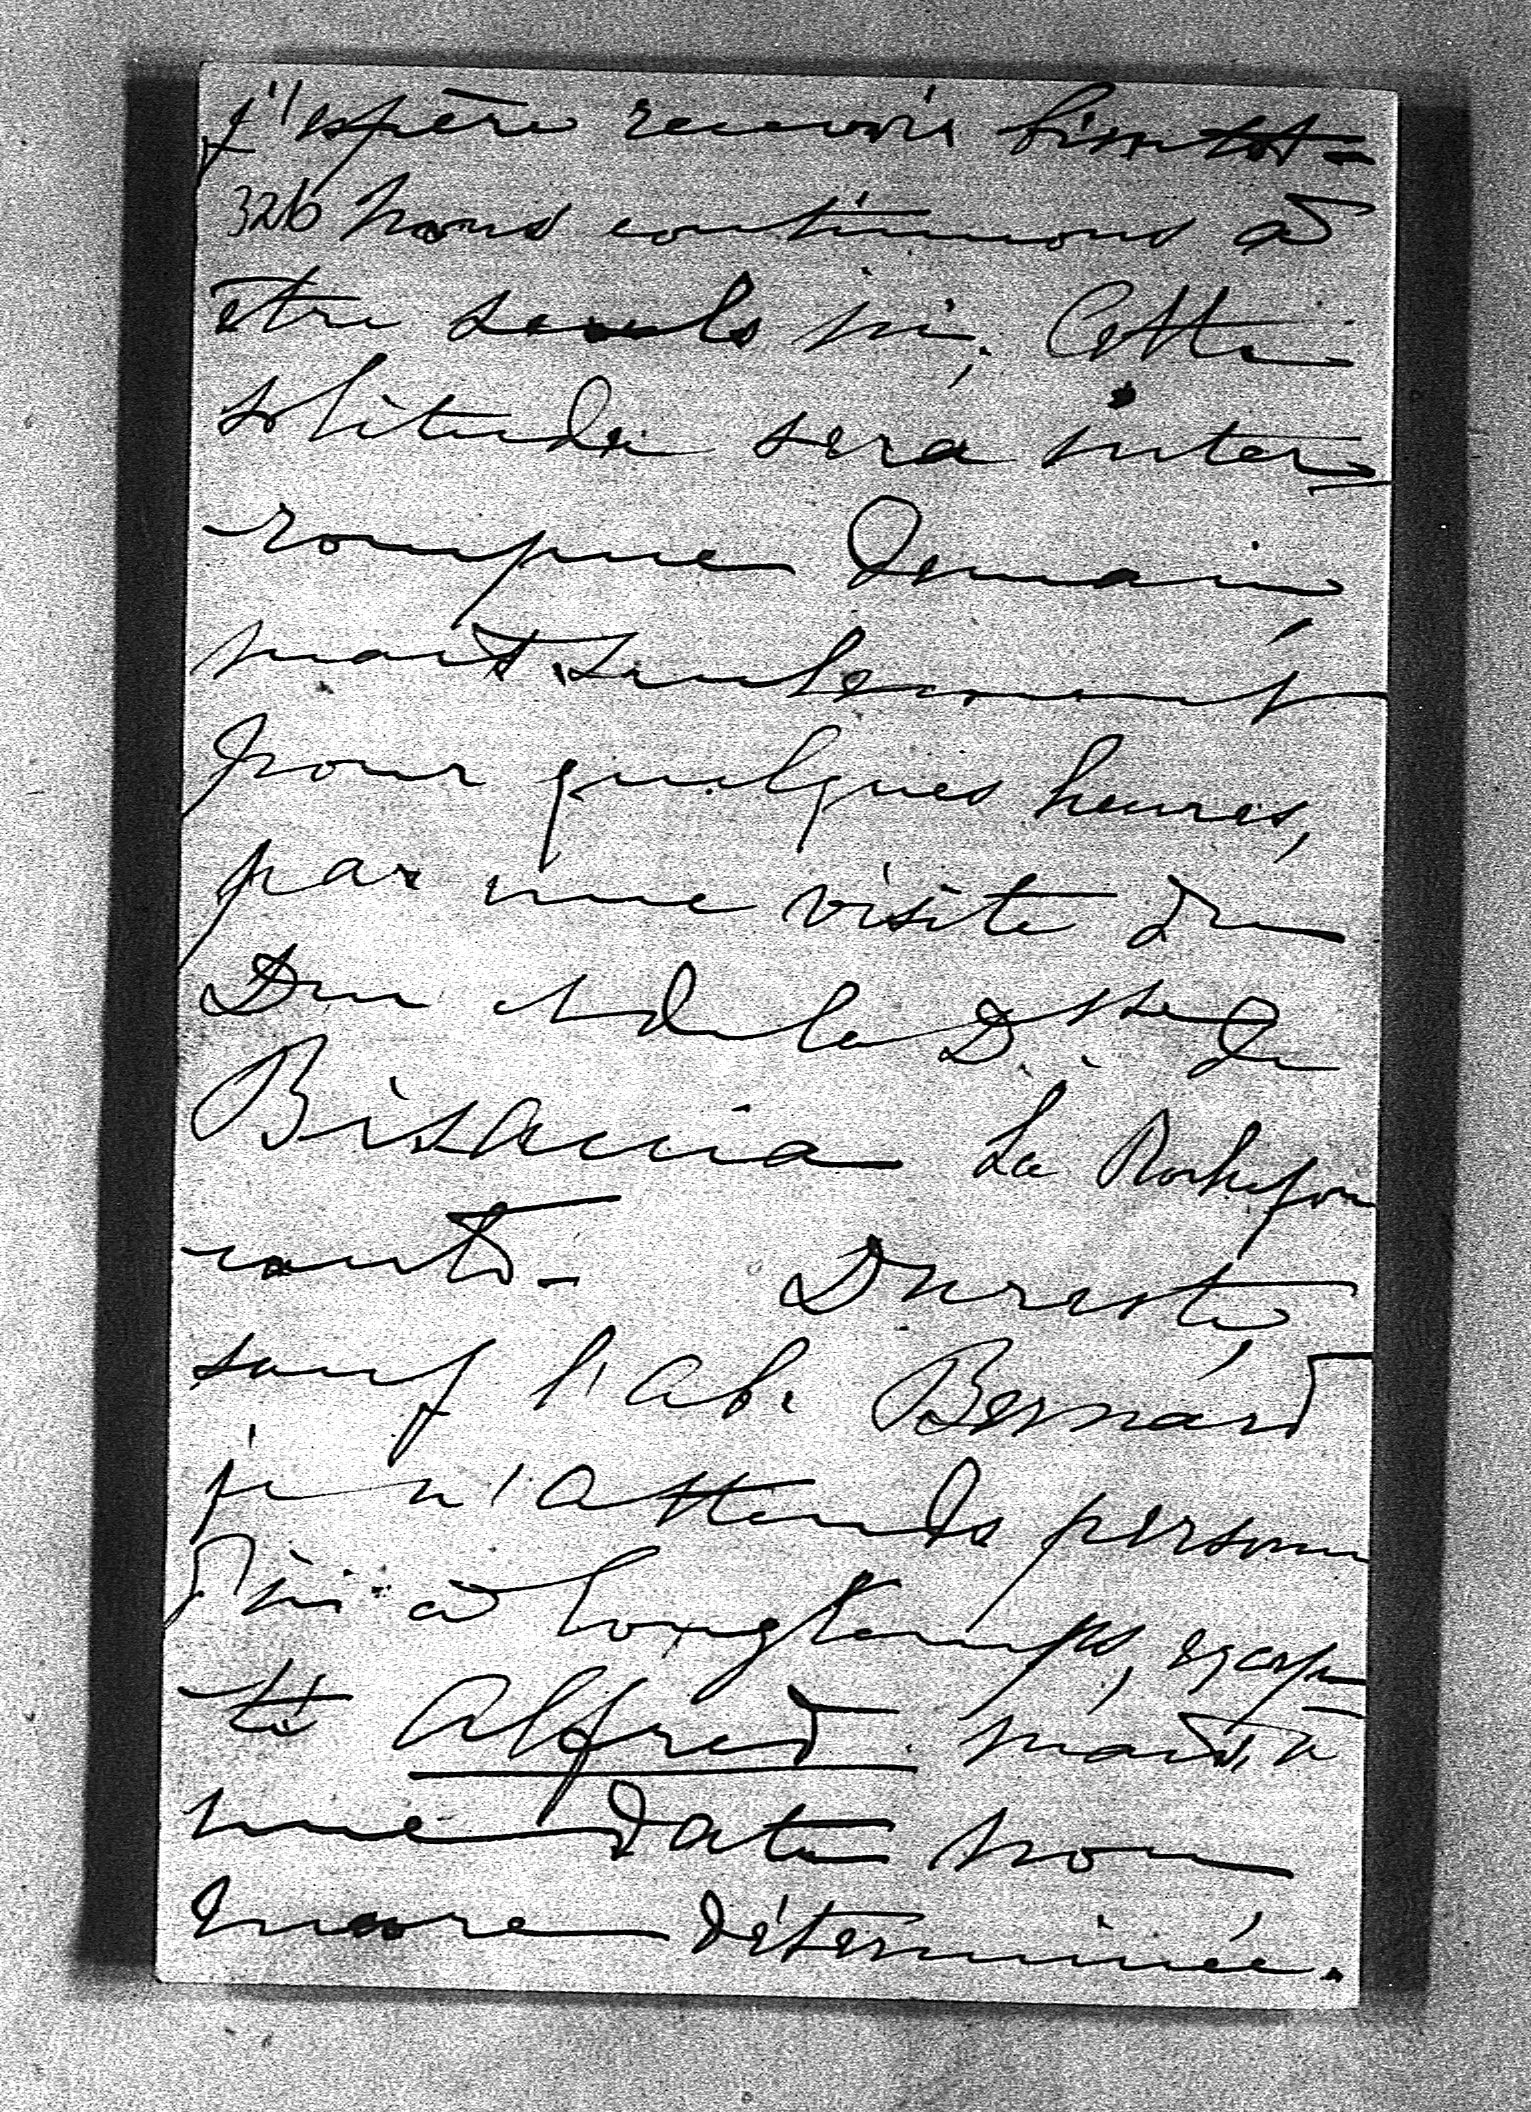 j'espère recevoir bientôt-
326 nous continuons à
être seuls ici. Cette
solitude sera inter
rompue demain
mais seulement
pour quelques heures,
par une visite du
Duc et de la D.sse de
Bisaccia La Rochefou
cault- Du reste,
sauf l'ab. Bernard
je n'attends person
d'ici à longtemps, excep
té Alfred mais à
une date non
encore déterminée.